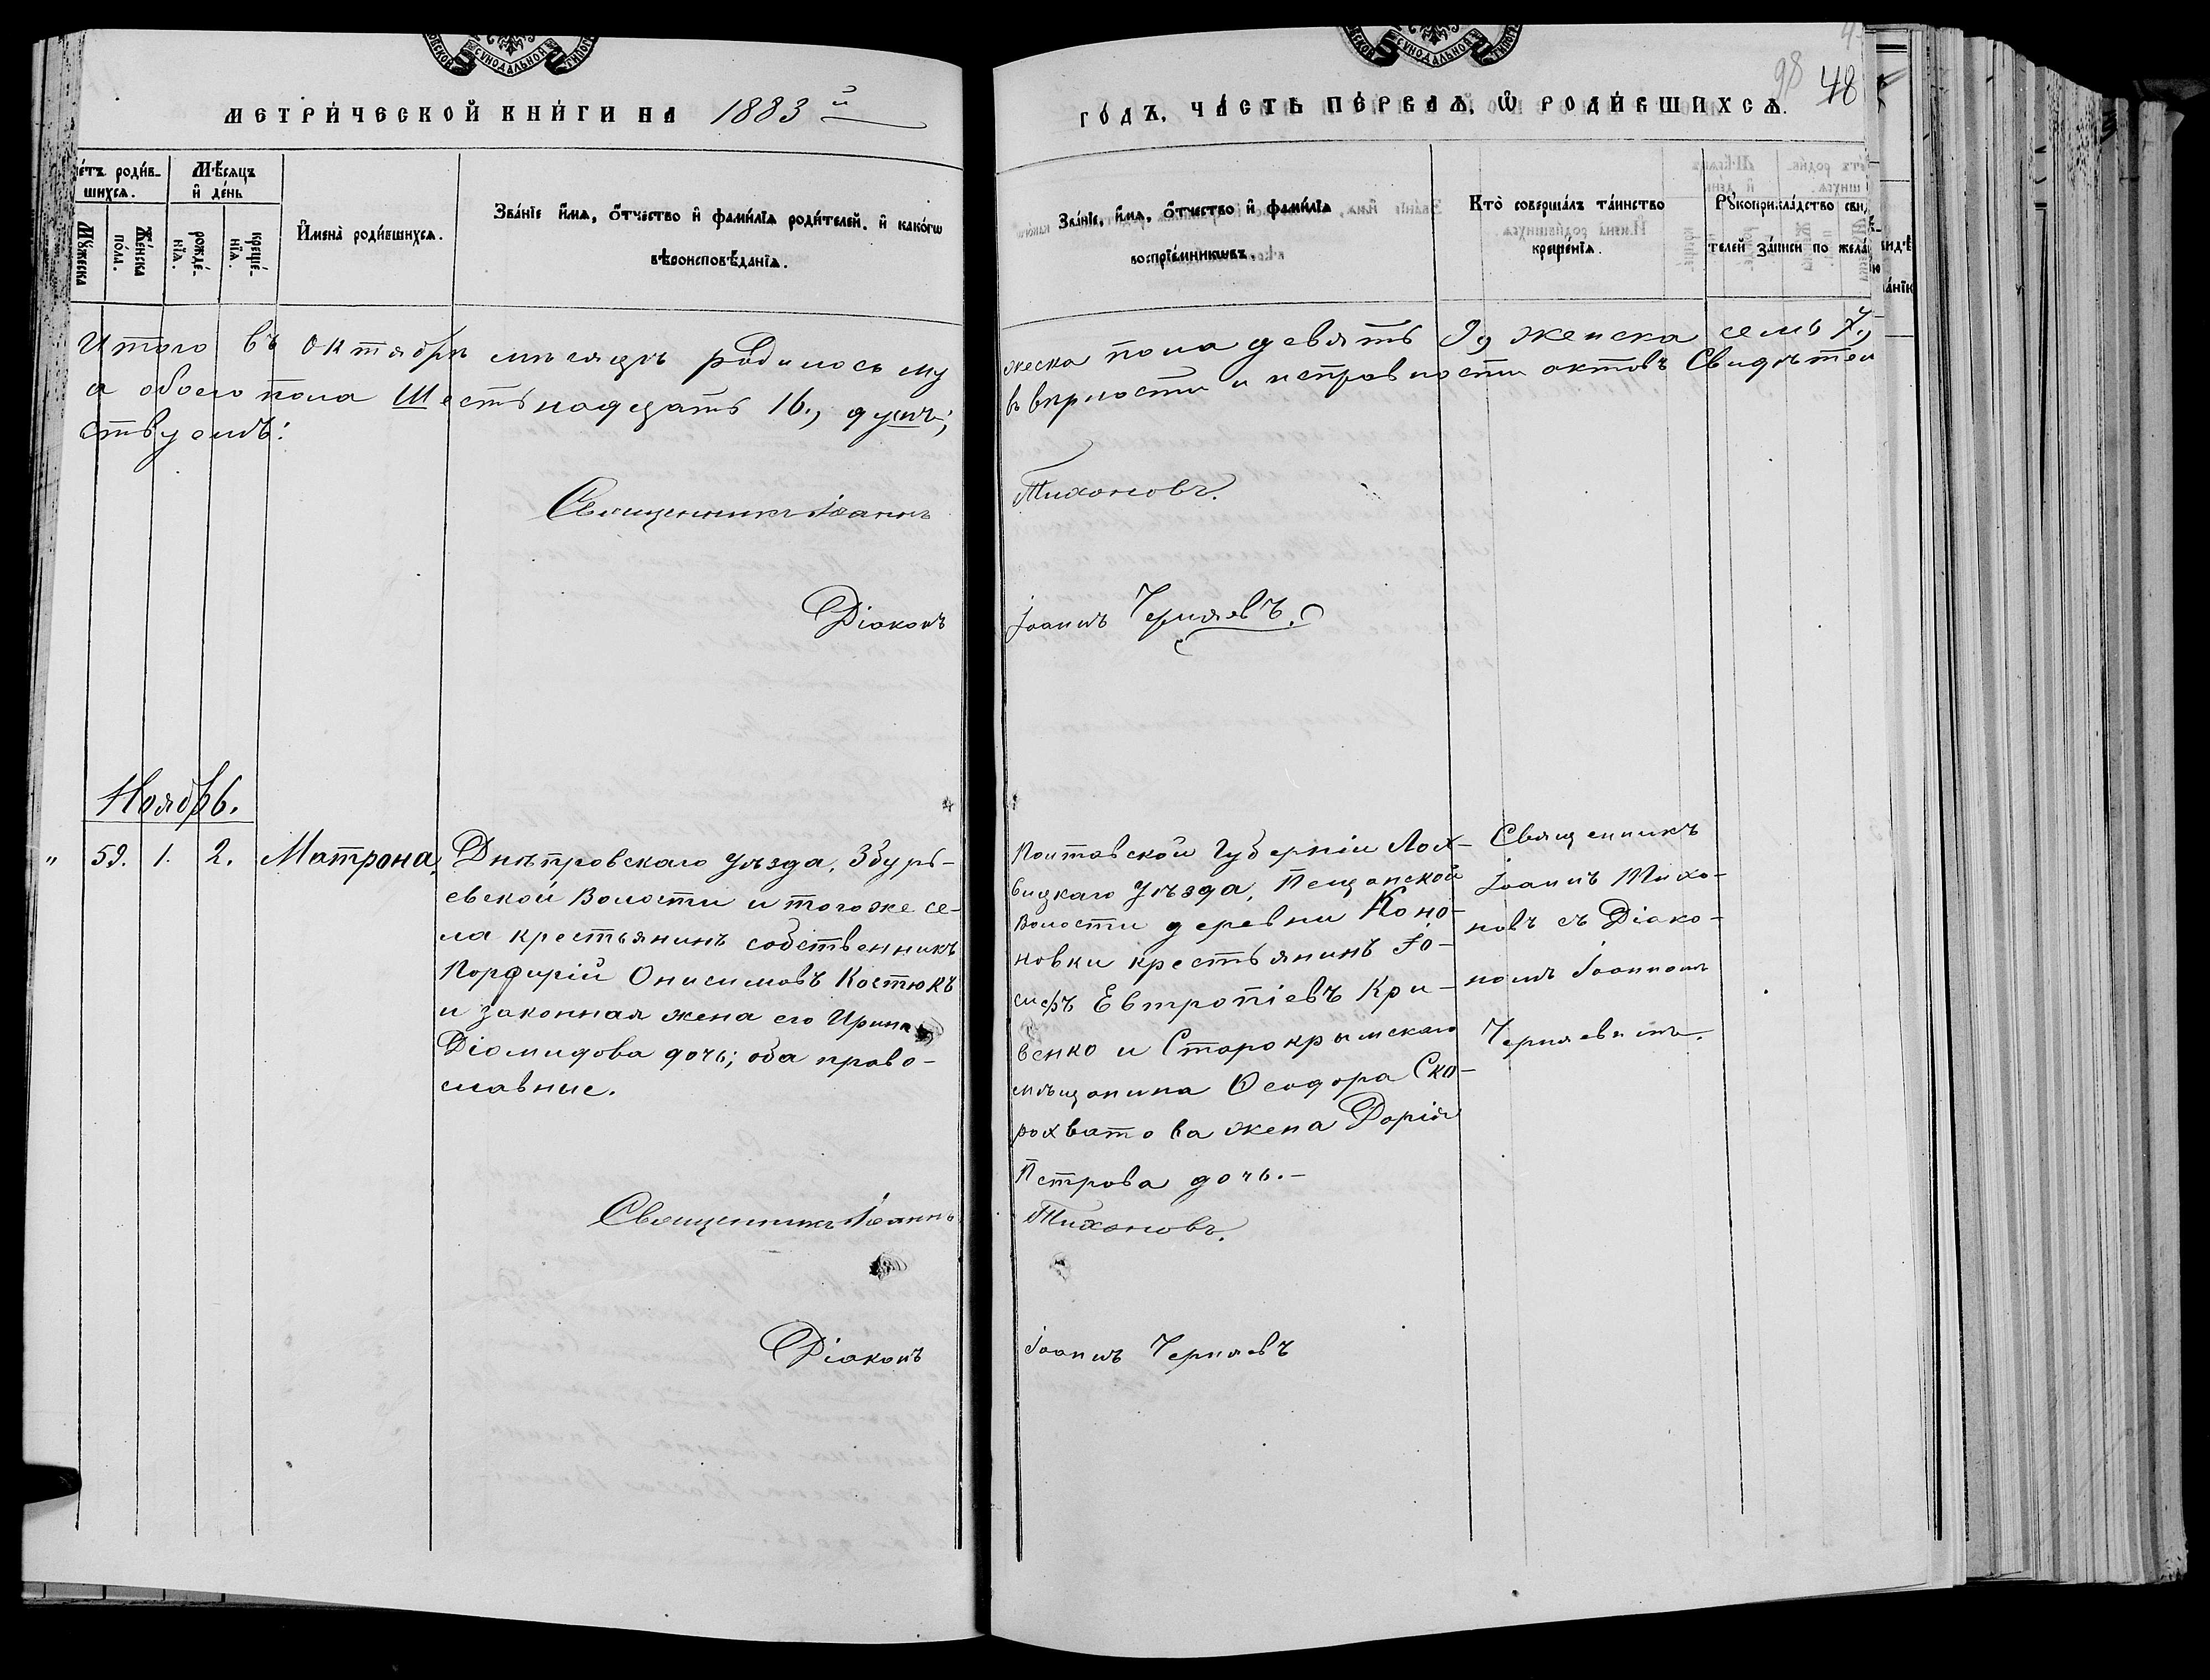 МЕТРИ́ЧЕСКОЙ КНИ́ГИ НА 1883 й
ГО́ДЪ, ЧА́СТЬ ПЕ́РВАѦ, Ѡ҆ РОДИ́ВШИХСѦ.
98 48
е́тъ роди́в-
шихсѧ.
Мꙋ́жеска
Же́нска
по́ла.
Мѣ́сѧцъ
и҆ де́нь
рожде́-
нїѧ.
креще́-
нїѧ.
И҆мена̀ роди́вшихсѧ.
Зва́нїе и҆́мѧ, ѻ҆́тчество и҆ фами́лїѧ роди́телей, и҆ како́гѡ
вѣроисповѣ́данїѧ.
Зва́нїе, и҆́мѧ, ѻ҆́тчество и҆ фами́лїѧ
воспрїе́мникѡвъ.
Кто̀ соверша́лъ та́инство
креще́нїѧ.
Рꙋкоприкла́дство свид
телей за́писи по жела
Итого въ октябрѣ мѣсяцѣ родилось му
жеска пола девять 9, женска семь 7,
а обоего пола Шестьнадцать 16, душъ;
въ вѣрности и исправности актовъ Свидѣтель
ствуемъ:
Священникъ Іоаннъ
Тихоновъ.
Діаконъ
Іоаннъ Черняевъ.
Ноябрь.
" 59. 1. 2. Матрона,
Днѣпровскаго уѣзда, Збурь-
евской Волости и тогоже се-
ла крестьянинъ собственникъ
Порфирій Онисимовъ Костюкъ
и законная жена его Ирина
Діомидова дочь; оба право-
славние.
Полтавской Губерніи Лох-
вицкаго Уѣзда, Пещанской
Волости деревни Коно-
новки крестьянинъ Іо-
сифъ Евтропіевъ Кри-
венко и Старокрымскаго
мѣщанина Ѳеодора Ско-
рохватова жена Дарія
Петрова дочь.-
Священникъ
Іоаннъ Тихо-
новъ съ Діако-
номъ Іоанномъ
Черняевымъ.
Священникъ Іоаннъ
Тихоновъ.
Діаконъ
Іоаннъ Черняевъ